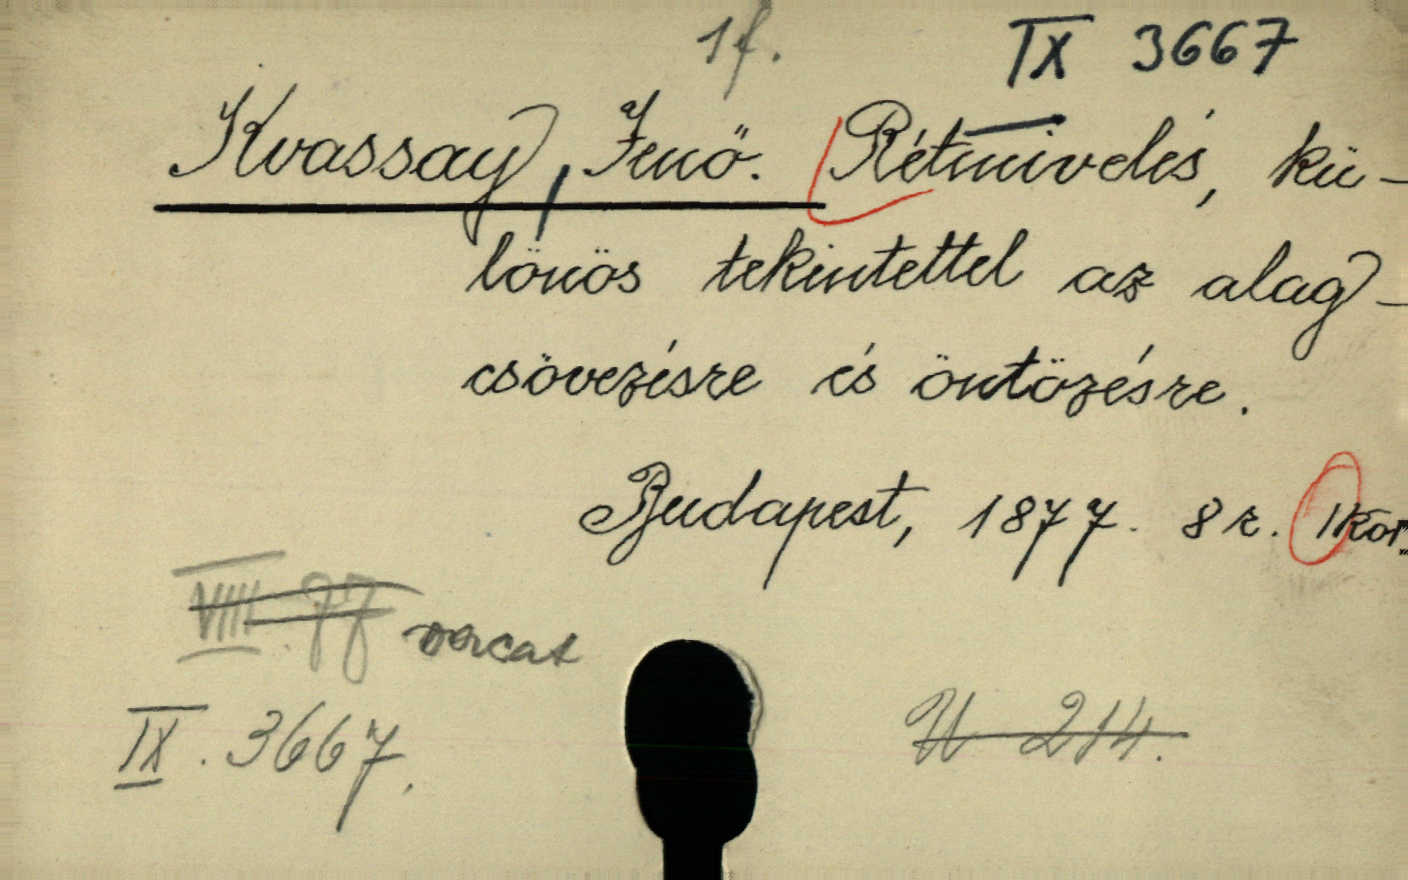 1 f.
IX 3667
Kvassay, Jenő. Rétmivelés, kü-
lönös tekintettel az alag-
csövezésre és öntözésre.
Budapest, 1877. 8 r. 1 kor.
VIII. 77 vacat
IX. 3667.
U 214.